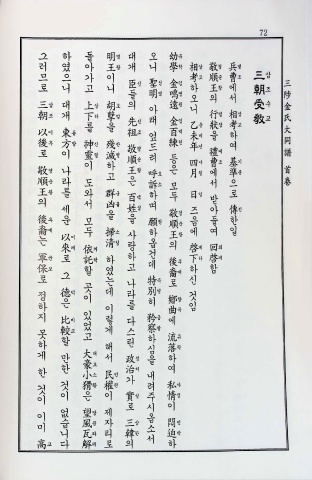 72
三陟金氏大同譜 首卷
三朝受敎
삼조수교
兵曹에서 相考하여 基準으로 傳한일
敬順王의 行狀을 禮曹에서 받아두어 回啓함
相考하오니 乙未年 四月 日 즈음에 啓下하신 것임
幼學 金鳴遠 金百練 등은 모두 敬順王의 後裔로 鄕曲에 流落하여 私情이 悶迫하
오니 聖明 아래 엎드려 呼訴하며 願하옵건데 特別히 矜察하심을 내려주시옵소서
대개 臣들의 先祖 敬順王은 百姓을 사랑하고 나라를 다스린 政治가 實로 三韓의
明王이니 胡孼을 殘滅하고 群凶을 掃淸하였는데 이렇게 해서 民權이 제자리로
돌아가고 上下를 神靈이 도와서 모두 依託할 곳이 있었고 大豪小猾은 望風瓦解
하였으니 대개 東方이 나라를 세운 以來로 그 德은 比較할 만한 것이 없습니다
그러므로 三朝 以後로 敬順王의 後裔는 軍保로 정하지 못하게 한 것이 이미 高